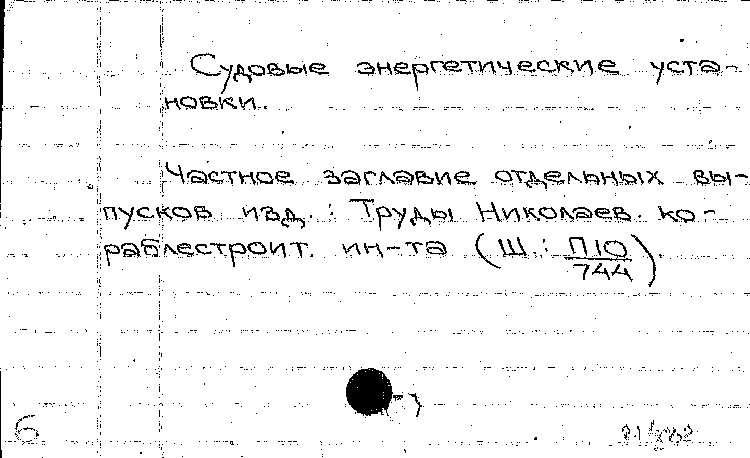 Судовые энергетические уста-
новки.
Частное заглавие отдельных вы-
пусков изд.: Труды Николаев. ко-
раблестроит. ин-та (Ш.: П10/744).
6